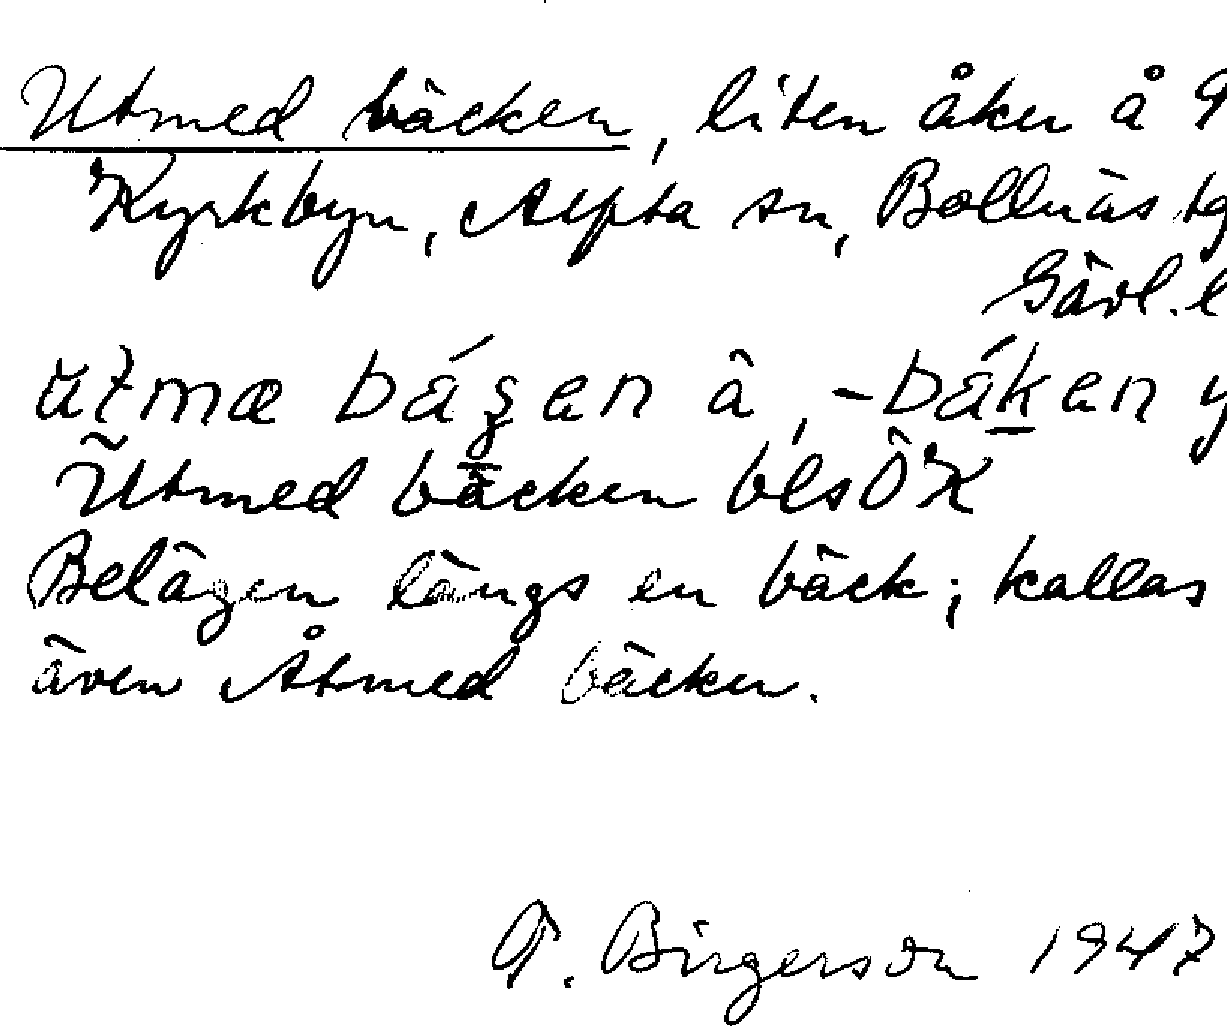 Utmed bäcken, liten åker å 9
Kyrkbyn, Alfta sn, Bollnäs tg
Gävl. l
utmæ bágen â, -báken y
Utmed bäcken blsÖK
Belägen längs en bäck; kallas
även Åtmed bäcken.
T. Birgerson 1947